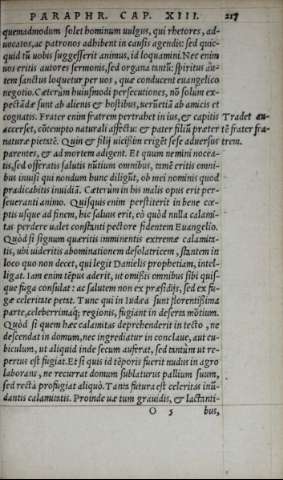 PARAPHR. CAP. XIII. 217
quemadmodum solet hominum uulgus, qui rhetores, ad-
uocatos, ac patronos adhibent in causis agendis: sed quic-
quid tū uobis suggesserit animus, id loquamini. Nec enim
uos eritis autores sermonis, sed organa tantū: spiritus au-
tem sanctus loquetur per uos, quæ conducent euangelico
negotio. Cæterùm huiusmodi persecutiones, nō solum ex-
pectādæ sunt ab alienis & hostibus, uerùetiā ab amicis et
cognatis. Frater enim fratrem pertrahet in ius, & capitis
accerset, cōtempto naturali affectu: & pater filiū præter
naturæ pietatē. Quin & filij uicißim erigēt sese aduersus
parentes, & ad mortem adigent. Et quum nemini nocea-
tis, sed offeratis salutis nūtium omnibus, tamē eritis omni-
bus inuisi qui nondum hunc diligūt, ob mei nominis quod
prædicabitis inuidiā. Cæterùm in his malis opus erit per-
seueranti animo. Quisquis enim perstiterit in bene cœ-
ptis usque ad finem, hic saluus erit, eò quòd nulla calami-
tas perdere ualet constanti pectore fidentem Euangelio.
Quòd si signum quæritis imminentis extremæ calamita-
tis, ubi uideritis abominationem desolatricem, stantem in
loco quo non decet, qui legit Danielis prophetiam, intel-
ligat. Iam enim tēpus aderit, ut omißis omnibus sibi quis-
que fuga consulat: ac salutem non ex præsidijs, sed ex fu-
gæ celeritate petat. Tunc qui in Iudæa sunt florentißima
parte, celeberrimaq; regionis, fugiant in deserta mōtium.
Quòd si quem hæc calamitas deprehenderit in tecto, ne
descendat in domum, nec ingrediatur in conclaue, aut cu-
biculum, ut aliquid inde secum auferat, sed tantùm ut re-
pertus est fugiat. Et si quis id tēporis fuerit nudus in agro
laborans, ne recurrat domum sublaturus pallium suum,
sed rectà profugiat aliquò. Tanta futura est celeritas inū-
dantis calamitatis. Proinde uæ tum grauidis, & lactanti-
O 5 bus,
Tradet au-
tē frater fra-
trem.